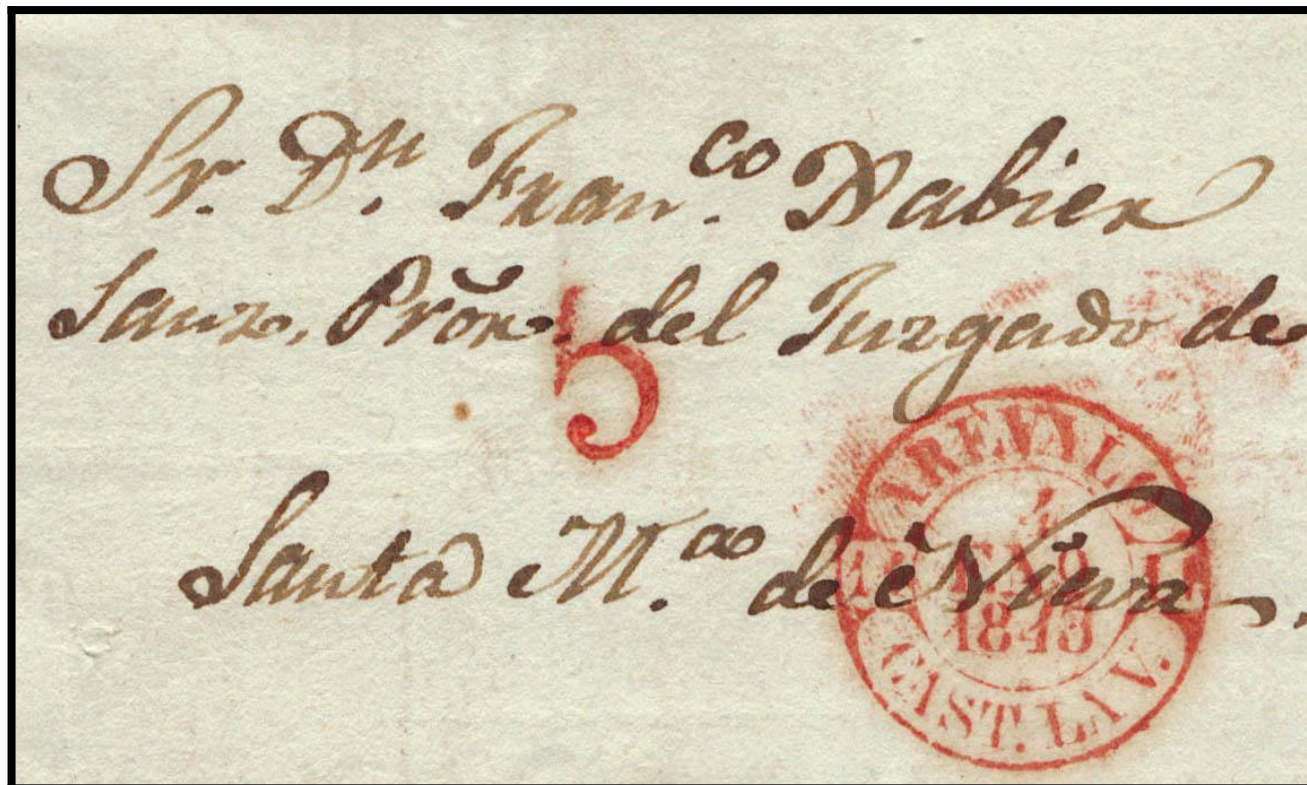 Sr. Dn. Franco. Xabier
Sanz, Prõr. del Juzgado de
5
Santa Ma. de Nieva.
AREVALO
4
1843
CAST. LA V.